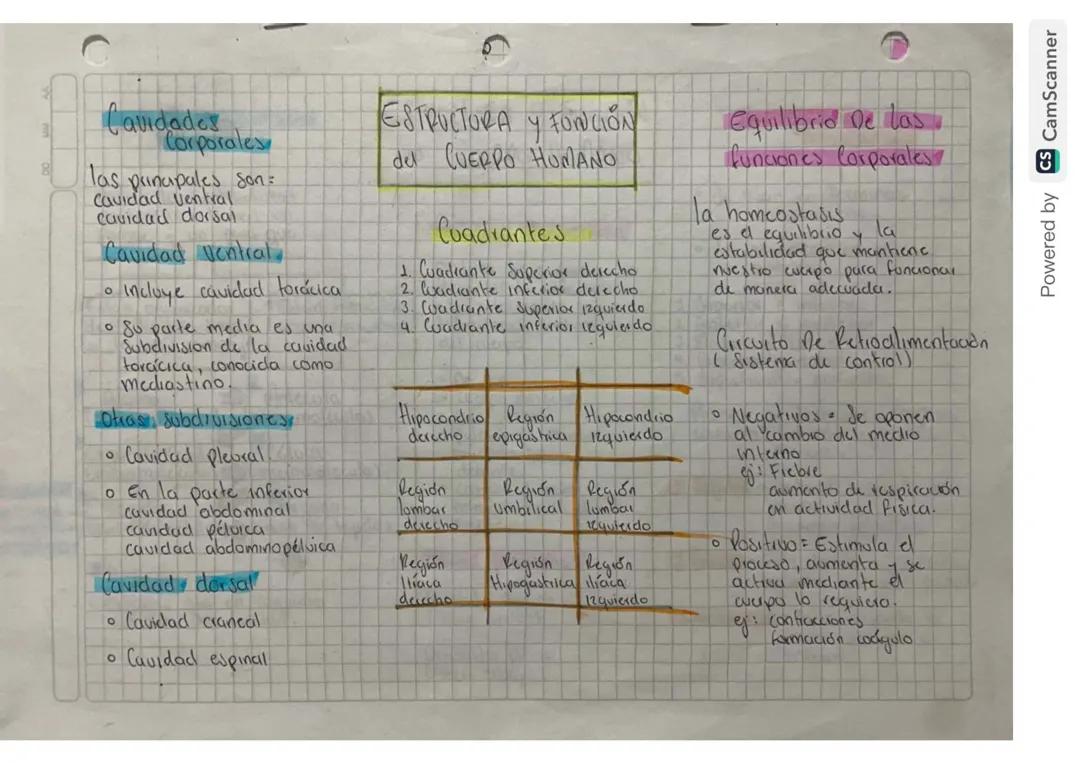 Cavidades
Corporales
las principales son:
cavidad ventral
cavidad dorsal
Cavidad ventral
o Incluye cavidad torácica
o Su parte media es una
subdivision de la cavidad
torácica, conocida como
mediastino.
Otras subdivisiones
o Cavidad pleural
o En la parte inferior
cavidad abdominal
cavidad pélvica
cavidad abdominopélvica
Cavidad dorsal
o Cavidad craneal
o Cavidad espinal
ESTRUCTURA y FUNCIÓN
del CUERPO HUMANO
Cuadrantes
1. Cuadrante Superior derecho
2. Cuadrante inferior derecho
3. Cuadrante Superior izquierdo
4. Cuadrante inferior izquierdo
Hipocondrio Región Hipocondrio
derecho epigastrica Izquierdo
Región Región Región
lumbar umbilical lumbar
derecho izquierdo
Región Región Región
Ilíaca Hipogastrica ilíaca
derecho izquierdo
Equilibrio De las
funciones Corporales
la homeostasis
es el equilibrio y la
estabilidad que mantiene
nuestro cuerpo para funcionar
de manera adecuada.
Circuito De Retroalimentación
(Sistema de control)
o Negativos = Se oponen
al cambio del medio
interno
ej: Fiebre
aumento de respiración
en actividad física.
o Positivo = Estimula el
proceso, aumenta y se
activa mediante el
cuerpo lo requiera.
ej: contracciones
formación coágulo
Powered by CS CamScanner